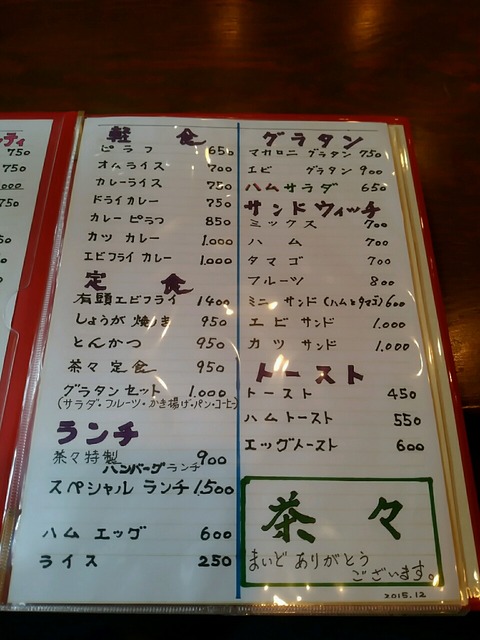 ティ
750
750
1,000
750
軽食
ピラフ 650
オムライス 700
カレーライス 750
ドライカレー 750
カレーピラフ 850
カツカレー 1.000
エビフライカレー 1.000
定食
有頭エビフライ 1400
しょうが焼き 950
とんかつ 950
茶々定食 950
グラタンセット 1.000
(サラダ・フルーツ・かき揚げ・パン・コーヒー)
ランチ
茶々特製
ハンバーグランチ 900
スペシャルランチ 1,500
ハムエッグ 600
ライス 250
グラタン
マカロニグラタン 750
エビグラタン 900
ハムサラダ 650
サンドウィッチ
ミックス 700
ハム 700
タマゴ 700
フルーツ 800
ミニサンド(ハムとタマゴ) 600
エビサンド 1.000
カツサンド 1.000
トースト
トースト 450
ハムトースト 550
エッグトースト 600
茶々
まいどありがとう
ございます。
2015.12